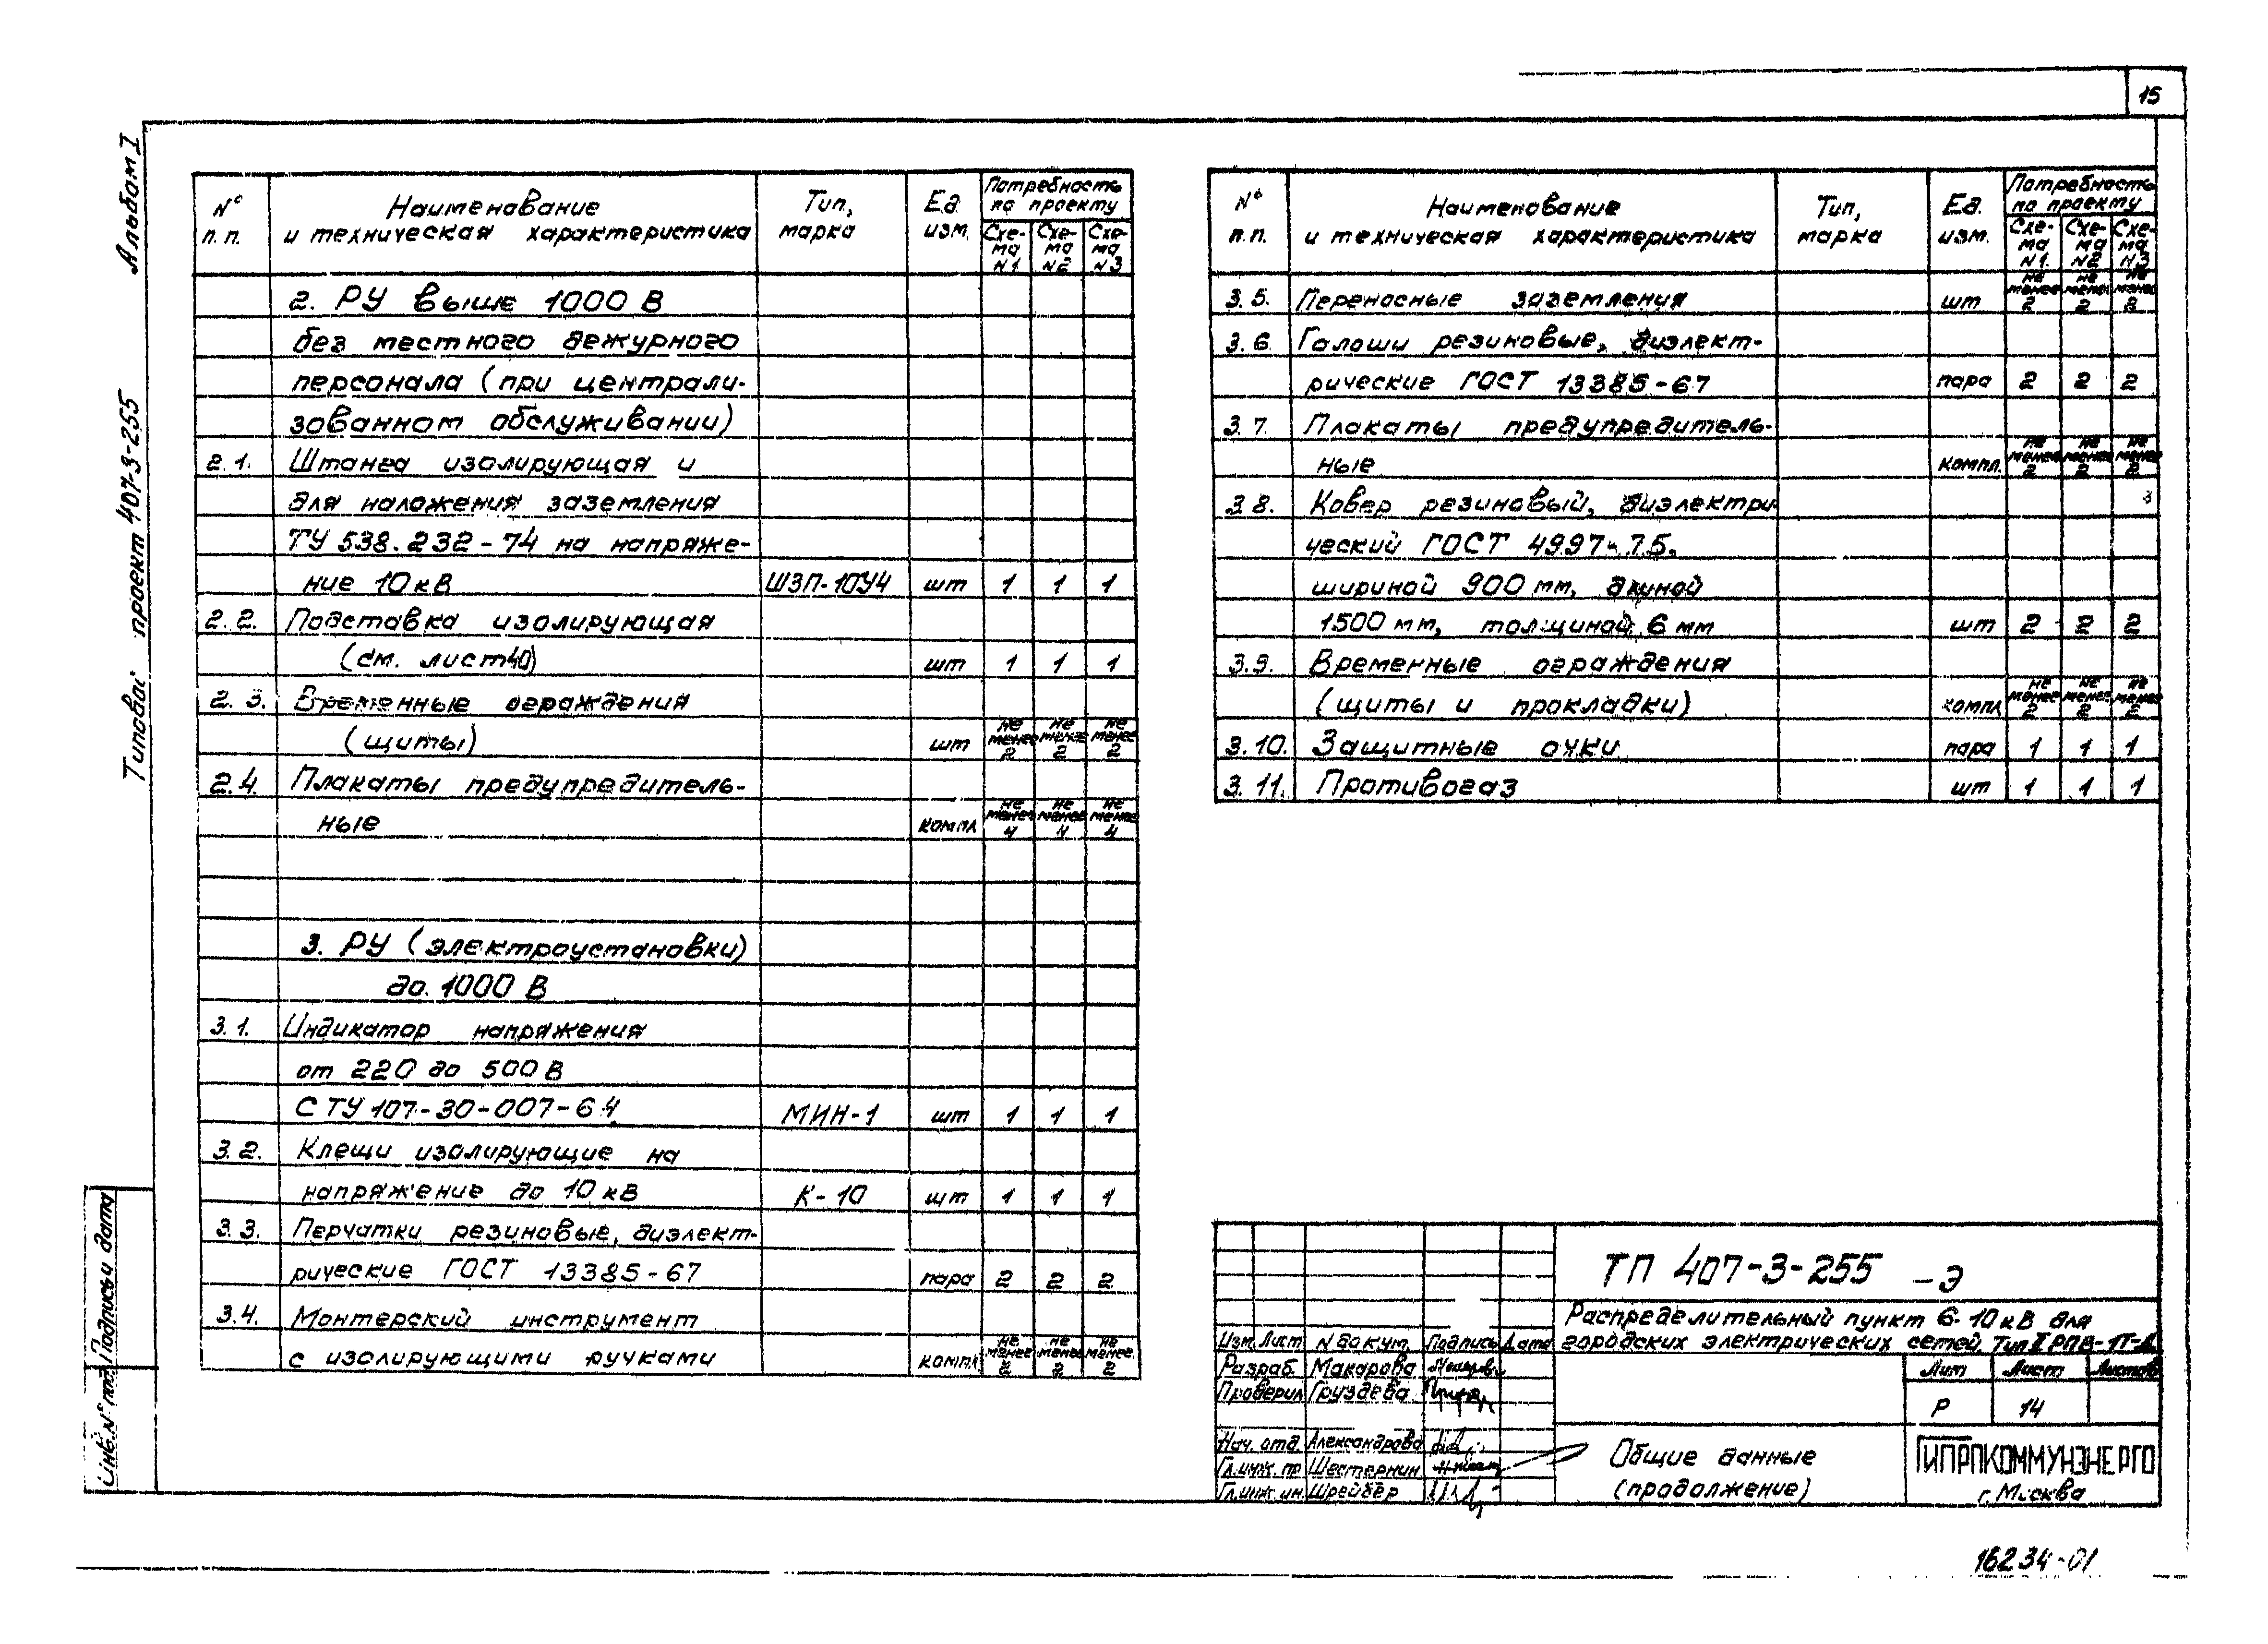 15
Альбом I
Типовой проект 407-3-255
Подпись и дата
Инв. № под
№ п.п. Наименование и техническая характеристика Тип, марка Ед. изм. Потребность по проекту
Схема N1 Схема N2 Схема N3
2. РУ выше 1000 В
без местного дежурного
персонала (при централи-
зованном обслуживании)
2.1. Штанга изолирующая и
для наложения заземления
ТУ 538.232-74 на напряже-
ние 10 кВ ШЗП-10У4 шт 1 1 1
2.2. Подставка изолирующая
(см. лист 40) шт 1 1 1
2.3. Временные ограждения
(щиты) шт не менее 2 не менее 2 не менее 2
2.4. Плакаты предупредитель-
ные компл не менее 4 не менее 4 не менее 4
3. РУ (электроустановки)
до 1000 В
3.1. Индикатор напряжения
от 220 до 500 В
СТУ 107-30-007-64 МИН-1 шт 1 1 1
3.2. Клещи изолирующие на
напряжение до 10 кВ К-10 шт 1 1 1
3.3. Перчатки резиновые, диэлект-
рические ГОСТ 13385-67 пара 2 2 2
3.4. Монтерский инструмент
с изолирующими ручками компл. не менее 2 не менее 2 не менее 2
№ п.п. Наименование и техническая характеристика Тип, марка Ед. изм. Потребность по проекту
Схема N1. Схема N2 Схема N3
3.5. Переносные заземления шт не менее 2 не менее 2 не менее 2
3.6. Галоши резиновые, диэлект-
рические ГОСТ 13385-67 пара 2 2 2
3.7. Плакаты предупредитель-
ные компл. не менее 2 не менее 2 не менее 2
3.8. Ковер резиновый, диэлектри
ческий ГОСТ 4997-75.
шириной 900 мм, длиной
1500 мм, толщиной 6 мм шт 2 2 2
3.9. Временные ограждения
(щиты и прокладки) компл не менее 2 не менее 2 не менее 2
3.10. Защитные очки пара 1 1 1
3.11. Противогаз шт 1 1 1
ТП 407-3-255 -Э
Распределительный пункт 6-10 кВ для
городских электрических сетей. Тип II РПВ-1Т-
Изм. Лист N докум. Подпись Дата
Разраб. Макарова
Проверил Груздева
Нач. отд. Александрова
Гл. инж. пр Шестернин
Гл. инж. ин. Шрейбер
Лит Лист Листов
Р 14
Общие данные
(продолжение)
ГИПРОКОММУНЭНЕРГО
г. Москва
16234-01